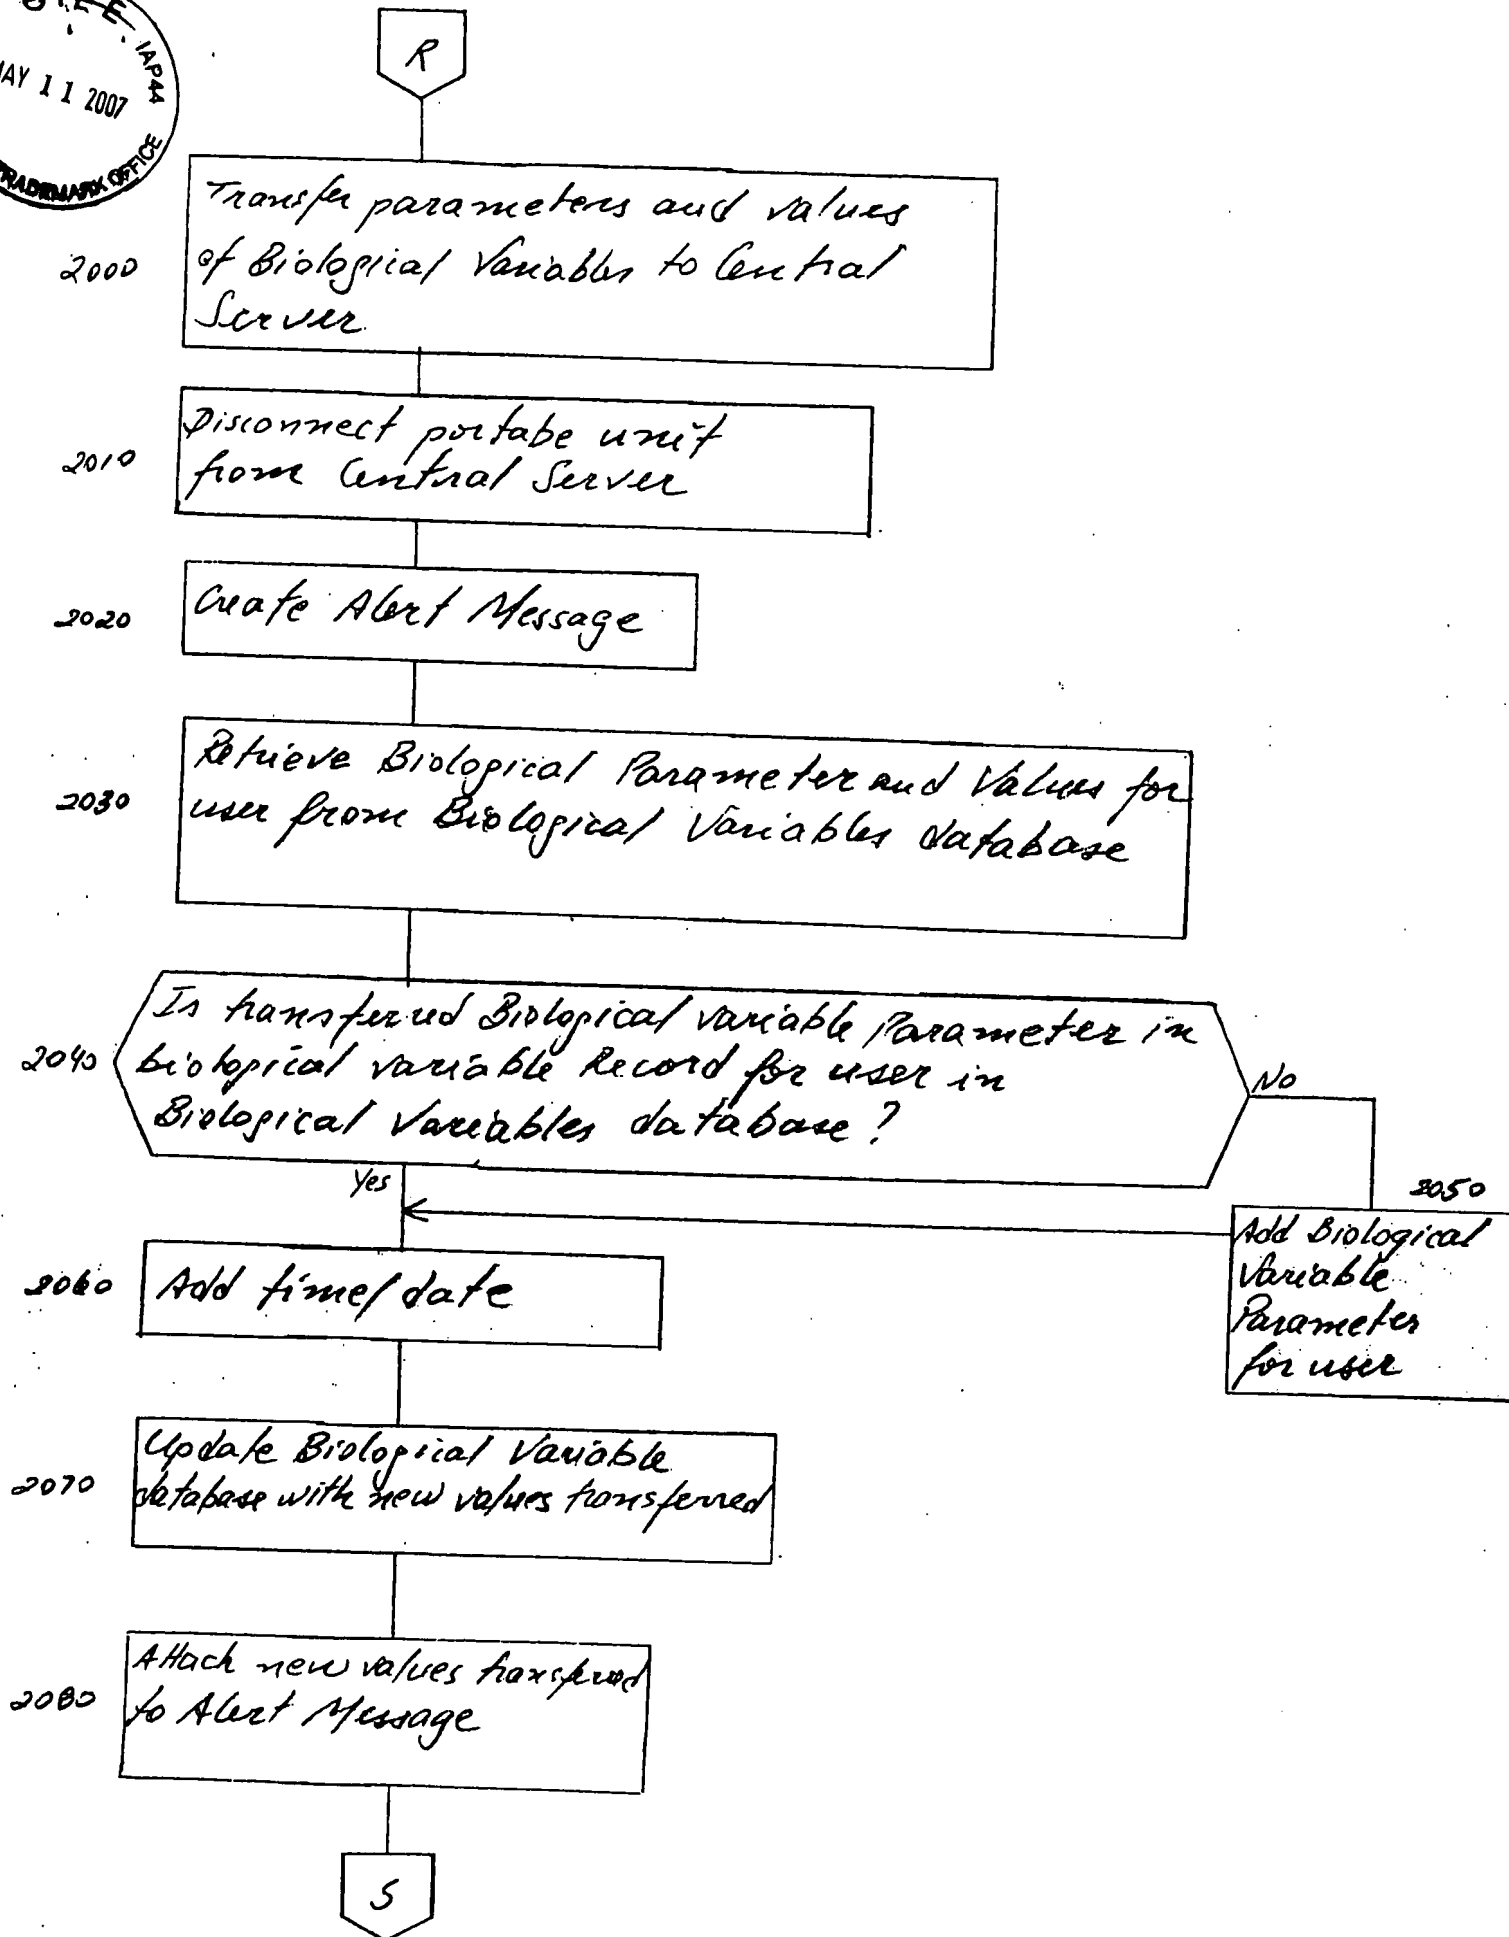 O I P E
IAP44
MAY 11 2007
TRADEMARK OFFICE
R
2000
Transfer parameters and values
of Biological Variables to Central
Server.
2010
Disconnect portabe unit
from Central Server
2020
Create Alert Message
2030
Retrieve Biological Parameter and Values for
user from Biological Variables database
2040
Is transferred Biological variable Parameter in
biological variable Record for user in
Biological Variables database?
No
Yes
2050
Add Biological
Variable
Parameter
for user
2060
Add time/date
2070
Update Biological Variable
database with new values transferred
2080
Attach new values transferred
to Alert Message
S